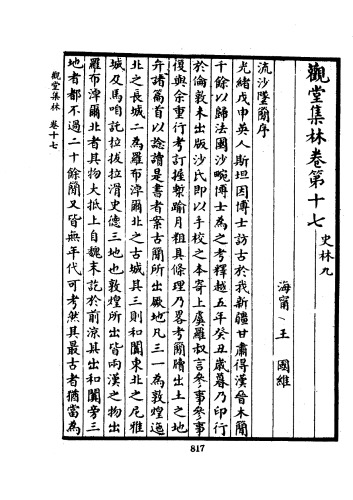 觀堂集林卷第十七
史林九
海甯 王 國維
流沙墜簡序
光緒戊申英人斯坦因博士訪古於我新疆甘肅得漢晉木簡
千餘以歸法國沙畹博士為之考釋越五年癸丑歲暮乃印行
於倫敦未出版沙氏即以手校之本寄上虞羅叔言參事參事
復與余重行考訂握槧踰月粗具條理乃略考簡牘出土之地
弁諸篇首以諗讀是書者案古簡所出厥地凡三一為敦煌迤
北之長城二為羅布淖爾北之古城其三則和闐東北之尼雅
城及馬咱託拉拔拉滑史德三地也敦煌所出皆兩漢之物出
羅布淖爾北者其物大抵上自魏末訖於前涼其出和闐旁三
地者都不過二十餘簡又皆無年代可考然其最古者猶當為
觀堂集林 卷十七
817